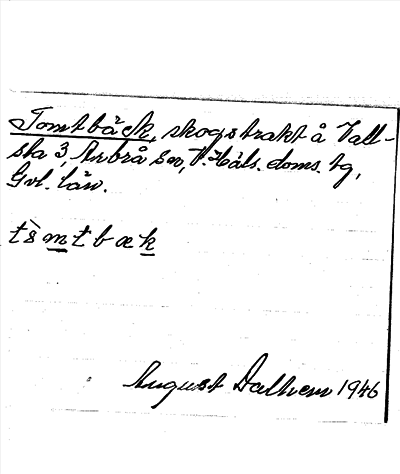 Tomtbäck, skogstrakt å Vall-
sta 3, Arbrå sn, V. Häls. doms. tg,
Gvl. län.
tò̈mtbæk
August Dalhem 1946